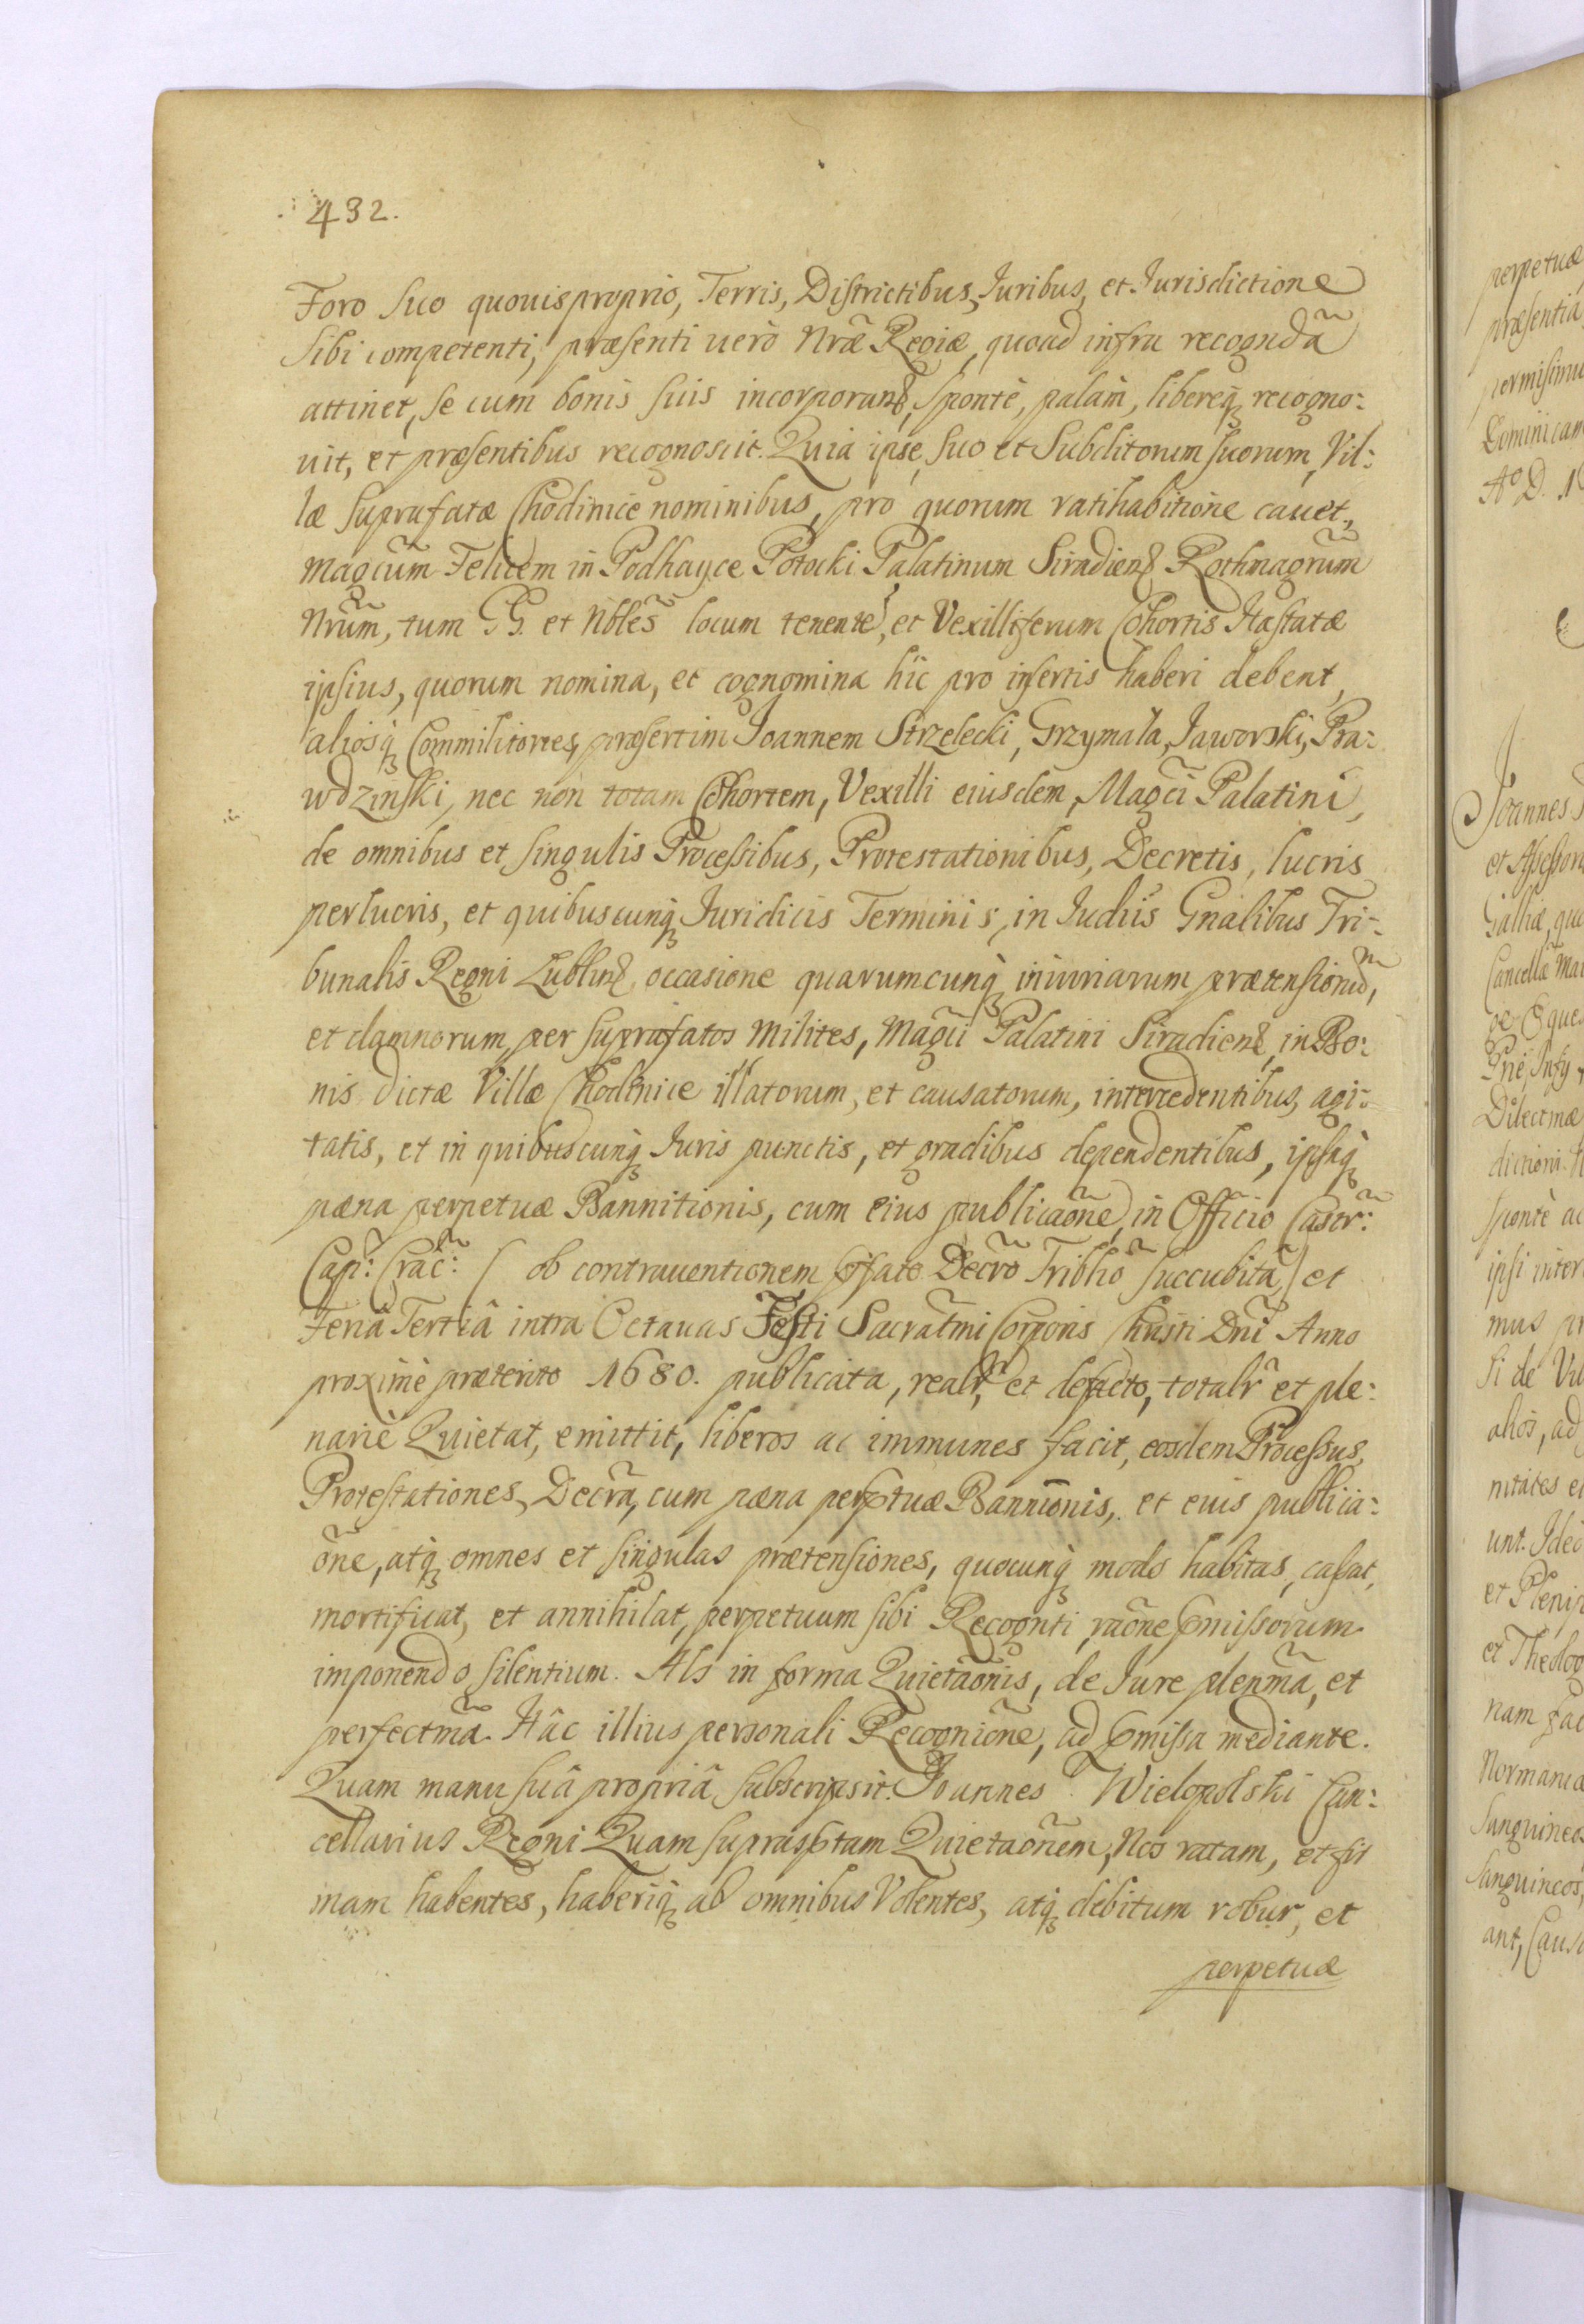 432.
Foro suo quovis proprio, Terris, Districtibus, Juribus, et Jurisdictione
sibi competenti, præsenti verò Nræ̃ Regiæ, quoad infra recogndã
attinet, se cum bonis suis incorporans, spontè, palàm, libereq̃ recogno:
uit, et præsentibus recognoscit. Quia ipse, suo et Subditorum suorum, Vil:
læ suprafatæ Chodinice nominibus, pro quorum ratihabitione cauet,
Magcum̃ Felicem in Podhayce Potocki Palatinum Siradiens Rothmagrum̃
Nrum̃, tum GG. et Nbles̃ locum tenente, et Vexilliferum Cohortis Hastatæ
ipsius, quorum nomina, et cognomina hic pro insertis haberi debent,
aliosq̃ Commilitones, præsertim Joannem Strzelecki, Grzymała, Jaworski, Pra:
wdzinski, nec non totam Cohortem, Vexilli eiusdem, Magci̇̃ Palatini,
de omnibus et singulis Processibus, Protestationibus, Decretis, lucris
perlucris, et quibuscunq̃ Juridicis Terminis, in Judiis Gnalibus Tri:
bunalis Regni Lublins, occasione quarumcunq̃ iniuriarum prætensionũ,
et damnorum, per suprafatos Milites, Magci̇̃ Palatini Siradiens, in Bo:
nis dictæ Villæ Chodinice illatorum, et causatorum, intercedentibus, agi:
tatis, et in quibuscunq̃ Juris punctis, et gradibus dependentibus, ipsaq̃
pæna perpetuæ Bannitionis, cum eius publicaõne, in Officio Castr:
Cap: Crac: ( ob contrauentionem pfato Decrõ Tribhõ succubitã ) et
Feriâ Tertiâ intra Octauas Festi Sacratm̃i Corporis Christi Dnĩ Anno
proximè præterito 1680. publicata, realr̃, et defacto, totalr̃ et ple:
nariè Quietat, emittit, liberos ac immunes facit, eosdem Processus,
Protestationes, Decrã, cum pæna perptuæ Banniõnis, et eius publica:
õne, atq̃ omnes et singulas prætensiones, quocunq̃ modo habitas, cassat,
mortificat, et annihilat, perpetuum sibi Recognti raõne pmissorum
imponendo silentium. Als in forma Quietaõnis, de Jure plenmã, et
perfectmã. Hâc illius personali Recogniõne, ad pmissa mediante.
Quam manu suâ propriâ subscripsit. Joannes Wielopolski Can:
cellarius Regni Quam suprasptam Quietaõnem, Nos ratam, et fir
mam habentes, haberiq̃ ab omnibus Volentes, atq̃ debitum robur, et
perpetuæ